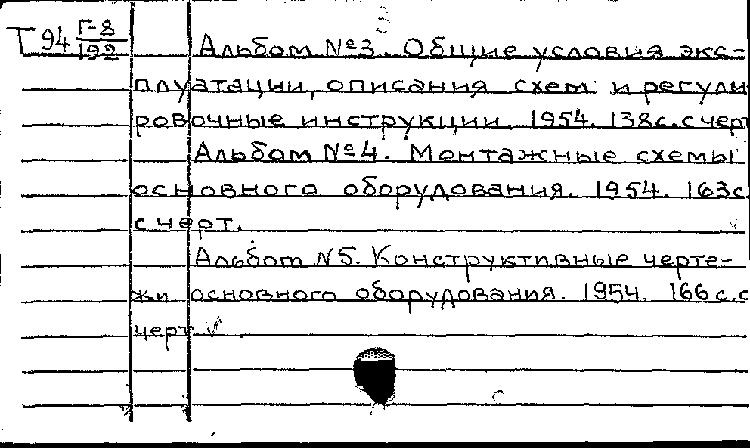 3
Т 94 Г-8/192 Альбом №3. Общие условия экс-
плуатации, описания схем и регули
ровочные инструкции. 1954. 138с. с черт
Альбом №4. Монтажные схемы
основного оборудования. 1954. 163с
с черт.
Альбом №5. Конструктивные черте-
жи основного оборудования. 1954. 166 с. с
черт.